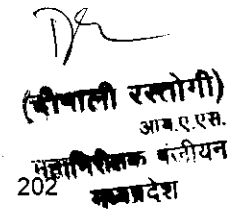 (दीपाली रस्तोगी)
आय.ए.एस.
महानिरीक्षक पंजीयन
202
मध्यप्रदेश